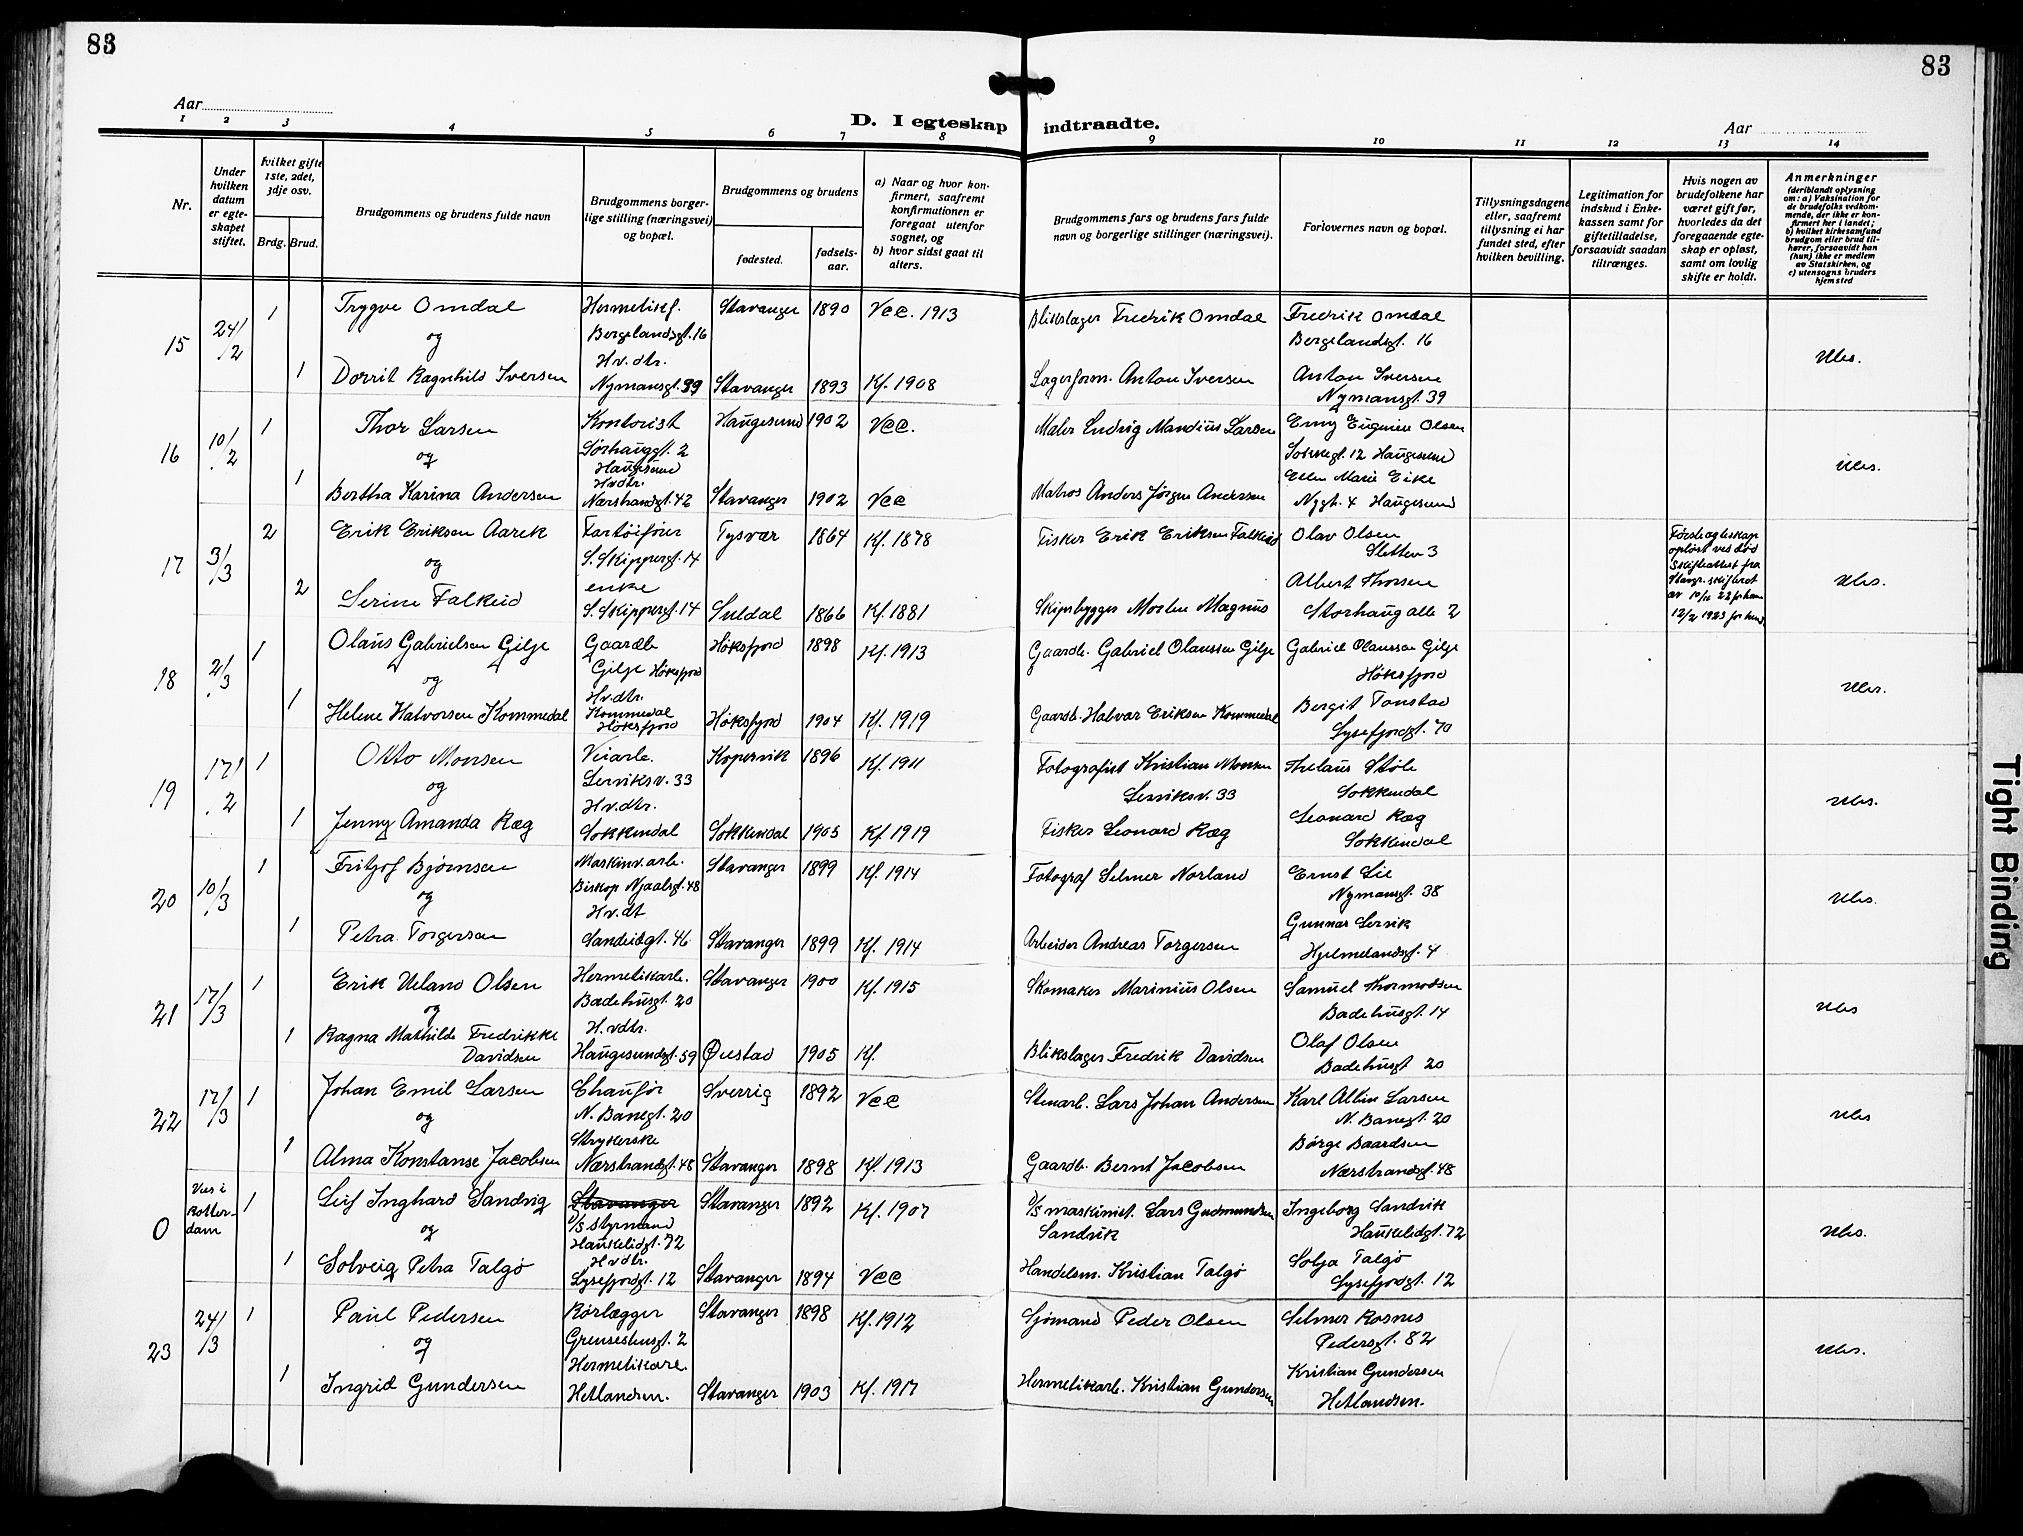 83
83
Aar
D. I egteskap indtraadte.
Aar
1 2 3 4 5 6 7 8 9 10 11 12 13 14
Nr.
Under hvilken datum er egteskapet stiftet.
Hvilket gifte 1ste, 2det, 3dje osv.
Brdg. Brud.
Brudgommens og brudens fulde navn
Brudgommens borgerlige stilling (næringsvei) og bopæl.
Brudgommens og brudens
fødested.
fødselsaar.
a) Naar og hvor konfirmert, saafremt konfirmationen er foregaat utenfor sognet, og
b) hvor sidst gaat til alters.
Brudgommens fars og brudens fars fulde navn og borgerlige stillinger (næringsvei).
Forlovernes navn og bopæl.
Tillysningsdagene eller, saafremt tillysning ei har fundet sted, efter hvilken bevilling.
Legitimation for indskud i Enkekassen samt for giftetilladelse, forsaavidt saadan tiltrænges.
Hvis nogen av brudefolkene har været gift før, hvorledes da det foregaaende egteskap er opløst, samt om lovlig skifte er holdt.
Anmerkninger
(deriblandt oplysning om: a) Vaksination for de brudefolks vedkommende, der ikke er konfirmert her i landet; b) hvilket kirkesamfund brudgom eller brud tilhører, forsaavidt han (hun) ikke er medlem av Statskirken, og c) utensogns bruders hjemsted
15 24/2 1 Trygve Omdal Hermetikf. Stavanger 1890 Vcc. 1913 Blikslager Fredrik Omdal Fredrik Omdal
og Bergelandsgt. 16 Bergelandsgt. 16
Hv. dtr. Ubs.
1 Dorrit Ragnhild Iversen Nymansgt. 39 Stavanger 1893 Kf. 1908 Lagerform. Anton Iversen Anton Iversen
Nymansgt. 39
16 10/2 1 Thor Larsen Kontorist Haugesund 1902 Vcc. Maler Ludvig Mandius Larsen Enny Eugenie Olsen
og Sørhauggt. 2 Sokkegt. 12 Haugesund
Haugesund
Hvdtr. Ellen Marie Eike Ubs.
1 Bertha Karina Andersen Nærstrandgt. 42 Stavanger 1902 Vcc Matros Anders Jørgen Andersen Nygt. 4 Haugesund
17 3/3 2 Erik Eriksen Aarek Fartøifører Tysvær 1864 Kf. 1878 Fisker Erik Eriksen Falkeid Olav Olsen Første egteskap
og S. Skippergt. 14 Sletten 3 opløst ved død
enke Albert Thorsen Skifteattest fra
2 Serine Falkeid S. Skippergt. 14 Suldal 1866 Kf. 1881 Skipsbygger Morten Magnus Storhaug alle 2 Stavgr. skifteret
av 10/11 22 for ham Ubs.
12/2 1923 for hende
18 2/3 1 Olaus Gabrielsen Gilje Gaardb. Høksfjord 1898 Kf. 1913 Gaardb. Gabriel Olaussen Gilje Gabriel Olaussen Gilje
og Gilje Høksfjord Høksfjord
Hv. dtr. Ubs.
1 Helene Halvorsen Kommedal Kommedal Høksfjord 1904 Kf. 1919 Gaardb. Halvar Eriksen Kommedal Bergit Tonstad
Høksfjord Lysefjordgt. 70
19 17/2 1 Otto Monsen Veiarb. Kopervik 1896 Kf. 1911 Fotografist Kristian Monsen Thelaus Støle
og Lerviksv. 33 Lerviksv. 33 Sokkendal
Hv. dtr. Ubs.
1 Jenny Amanda Ræg Sokkendal Sokkendal 1905 Kf 1919 Fisker Leonard Ræg Leonard Ræg
Sokkendal
20 10/3 1 Fritjof Bjørnsen Maskinv. arb. Stavanger 1899 Kf. 1914 Fotograf Selmer Norland Ernst Lie
og Biskop Njaalsgt. 48 Nymansgt. 38
Hv. dt Gunnar Lervik Ubs.
1 Petra Torgersen Sandeidgt. 46 Stavanger 1899 Kf. 1914 Arbeider Andreas Torgersen Hjelmelandsgt. 4
21 17/3 1 Erik Ueland Olsen Hermetikarb. Stavanger 1900 Kf. 1915 Skomaker Marinius Olsen Samuel Thormodsen
og Badehusgt. 20 Badehusgt. 14
H. vdtr. Ubs
1 Ragna Mathilde Fredrikke Olaf Olsen
Davidsen Haugesundgt. 59 Ørestad 1905 Kf. Blikslager Fredrik Davidsen Badehusgt 20
22 17/3 1 Johan Emil Larsen Chaufør Sverrig 1892 Vcc Stenarb. Lars Johan Andersen Karl Albin Larsen
og N. Banegt. 20 N. Banegt. 20
Strykerske Børge Baardsen Ubs
1 Alma Konstanse Jacobsen Nærstrandgt. 48 Stavanger 1898 Kf. 1913 Gaardb. Bernt Jacobsen Nærstrandgt. 48
0 Vies i Rotterdam 1 Leif Inghard Sandvig Stavanger Stavanger 1892 Kf. 1907 D/S maskinist. Lars Gudmundsen Ingeborg Sandvik
og D/S styrmand Sandvik Haukelidgt. 72
Haukelidgt. 72
Hvdtr. Solja Talgø Ubs.
1 Solveig Petra Talgø Lysefjordgt. 12 Stavanger 1894 Vcc Handelsm. Kristian Talgø Lysefjordgt. 12
23 24/3 1 Paul Pedersen Rørlægger Stavanger 1898 Kf. 1912 Sjømand Peder Olsen Selmer Rosnes
og Grensestuegt. 2 Pedersgt. 82
Hermetikarb. Kristian Gundersen Ubs.
1 Ingrid Gundersen Hetlandsm. Stavanger 1903 Kf. 1917 Hermetikarb. Kristian Gundersen Hetlandsm.
Tight Binding